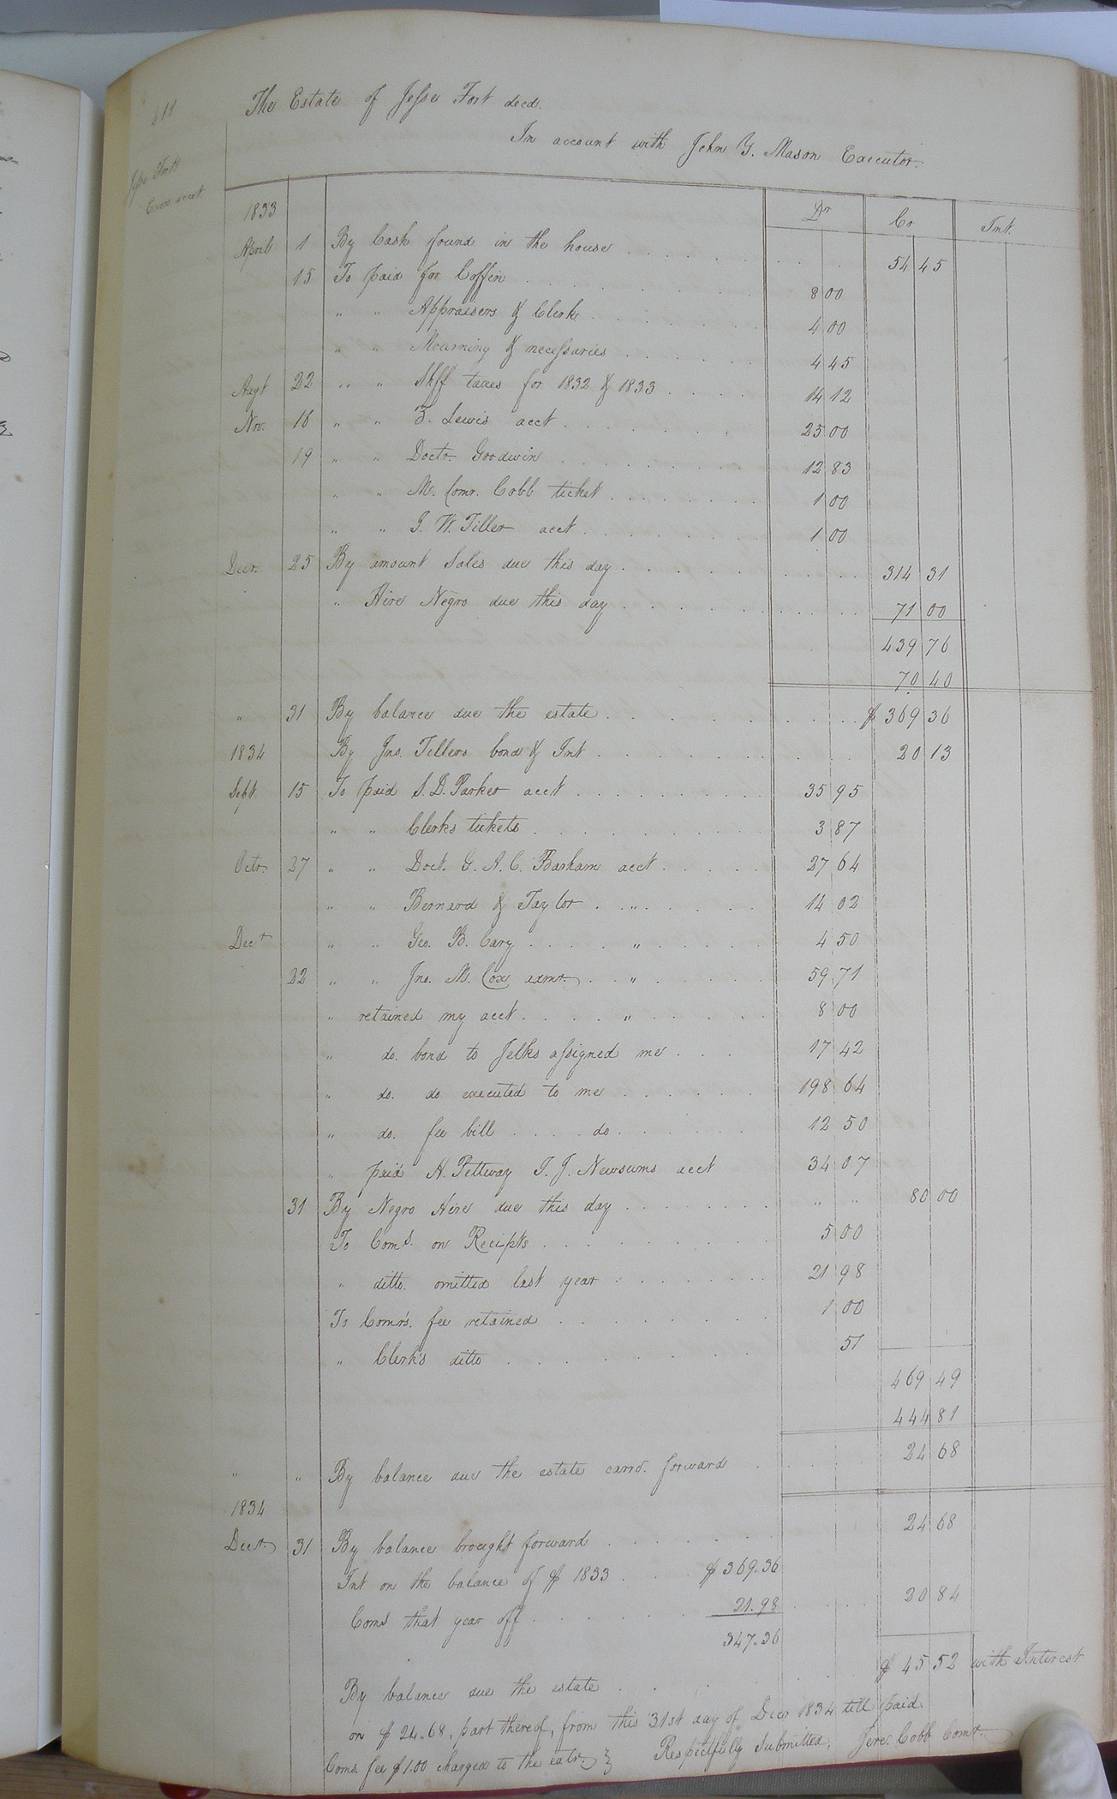 The Estate of Jesse Fort decd.
In account with John Y. Mason Executor.
Jesse Fort
Exors acct.
1833 Dr Cr Int.
April 1 By Cash found in the house 54 45
15 To paid for Coffin 8 00
" " Appraisers & Clerk 4 00
" " Mourning & necessaries 4 45
Augt 22 " " Shff taxes for 1832 & 1833 14 12
Nov. 18 " " Z. Lewis acct 25 00
19 " " Doctr. Goodwin 12 83
" " M. Comr. Cobb ticket 1 00
" " J. W. Tiller acct 1 00
Decr. 25 By amount Sales due this day 314 31
" Hire Negro due this day 71 00
439 76
70 40
" 31 By balance due the estate $ 369 36
1834 By Jno. Tillers bond & Int 20 13
Sept 15 To paid S. D. Parker acct 35 95
" " Clerks tickets 3 87
Octr. 27 " " Doct. G. A. C. Barham acct 27 64
" " Bernard & Taylor " 14 02
Decr " " Geo. B. Cary " 4 50
22 " " Jno. M. Cox admr. " 59 71
" retained my acct " 8 00
" do. bond to Jelks assigned me 17 42
" do. do executed to me 198 64
" do. fee bill do 12 50
" paid H. Pettway T. J. Newsums acct 34 07
31 By Negro Hire due this day " " 80 00
To Coms. on Recipts 5 00
" ditto. omitted last year 21 98
To Comrs. fee retained 1 00
" Clerk's ditto 51
469 49
444 81
" " By balance due the estate carrd. forward 24 68
1834
Decr. 31 By balance brought forward 24 68
Int on the balance of $ 1833 $ 369.36
Coms that year off 21.98 20 84
347.36
By balance due the estate $ 45 52 with Interest
on $ 24.68, part thereof, from this 31st day of Decr 1834 till paid
Coms. fee $1.00 charged to the estr. } Respectfully Submitted, Jere: Cobb Comr.